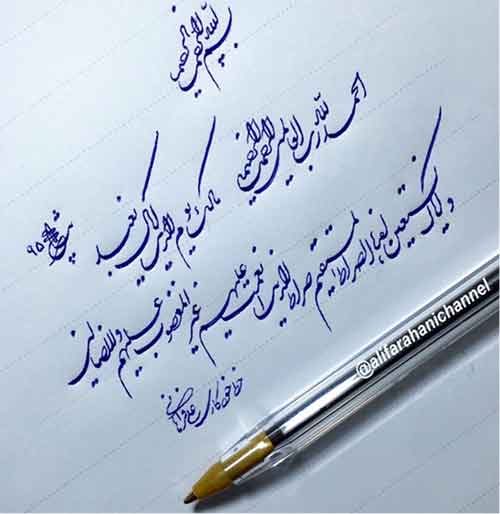 بسم الله الرحمن الرحیم
الحمد لله رب العالمین الرحمن الرحیم مالک یوم الدین ایاک نعبد
و ایاک نستعین اهدنا الصراط المستقیم صراط الذین انعمت علیهم غیر المغضوب علیهم و لا الضالین
۹۵
علی فراهانی
@alifarahanichannel